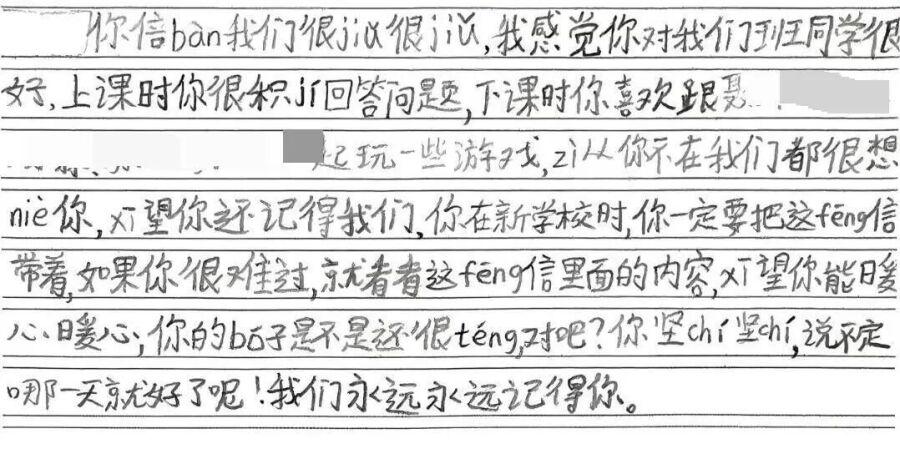 你信bàn我们很jiǔ很jiǔ,我感觉你对我们班同学很
好,上课时你很积jí回答问题,下课时你喜欢跟
起玩一些游戏,zì从你不在我们都很想
niè你,xī望你还记得我们,你在新学校时,你一定要把这fēng信
带着,如果你很难过,就看看这fēng信里面的内容,xī望你能暖
心暖心,你的bó子是不是还很téng,对吧?你坚chí坚chí,说不定
哪一天就好了呢!我们永远永远记得你。